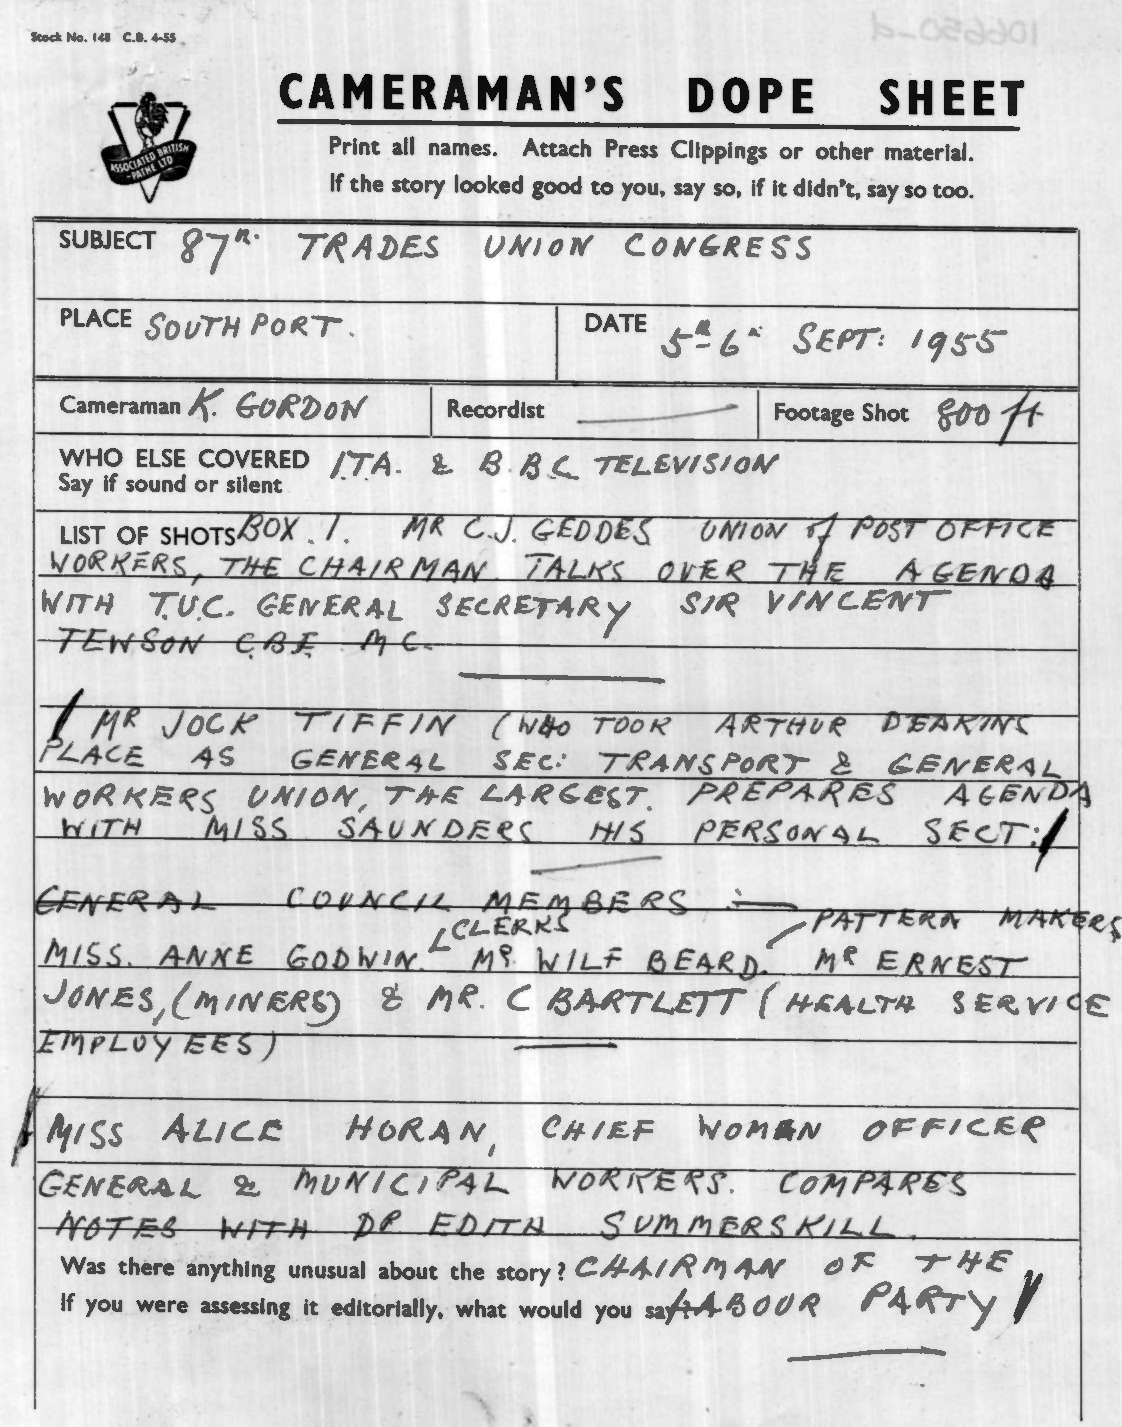 Stock No. 148 C.B. 4-55
106650-d
CAMERAMAN'S DOPE SHEET
ASSOCIATED BRITISH
-PATHE LTD
Print all names. Attach Press Clippings or other material.
If the story looked good to you, say so, if it didn't, say so too.
SUBJECT 87TH TRADES UNION CONGRESS
PLACE SOUTHPORT.
DATE 5TH 6TH SEPT: 1955
Cameraman K. GORDON
Recordist
Footage Shot 800 ft
WHO ELSE COVERED I.T.A. & B.B.C TELEVISION
Say if sound or silent
LIST OF SHOTS BOX. 1. MR C.J. GEDDES UNION of POST OFFICE
WORKERS, THE CHAIRMAN TALKS OVER THE AGENDA
WITH T.U.C. GENERAL SECRETARY SIR VINCENT
TEWSON C.B.E. M C.
MR JOCK TIFFIN (WHO TOOK ARTHUR DEAKINS
PLACE AS GENERAL SEC: TRANSPORT & GENERAL
WORKERS UNION, THE LARGEST. PREPARES AGENDA
WITH MISS SAUNDERS HIS PERSONAL SECT:
GENERAL COUNCIL MEMBERS :—
CLERKS PATTERN MAKERS
MISS. ANNE GODWIN. MR. WILF BEARD. MR ERNEST
JONES, (MINERS) & MR. C BARTLETT (HEALTH SERVICE
EMPLOYEES)
MISS ALICE HORAN, CHIEF WOMAN OFFICER
GENERAL & MUNICIPAL WORKERS. COMPARES
NOTES WITH DR EDITH SUMMERSKILL.
Was there anything unusual about the story? CHAIRMAN OF THE
If you were assessing it editorially, what would you say? LABOUR PARTY